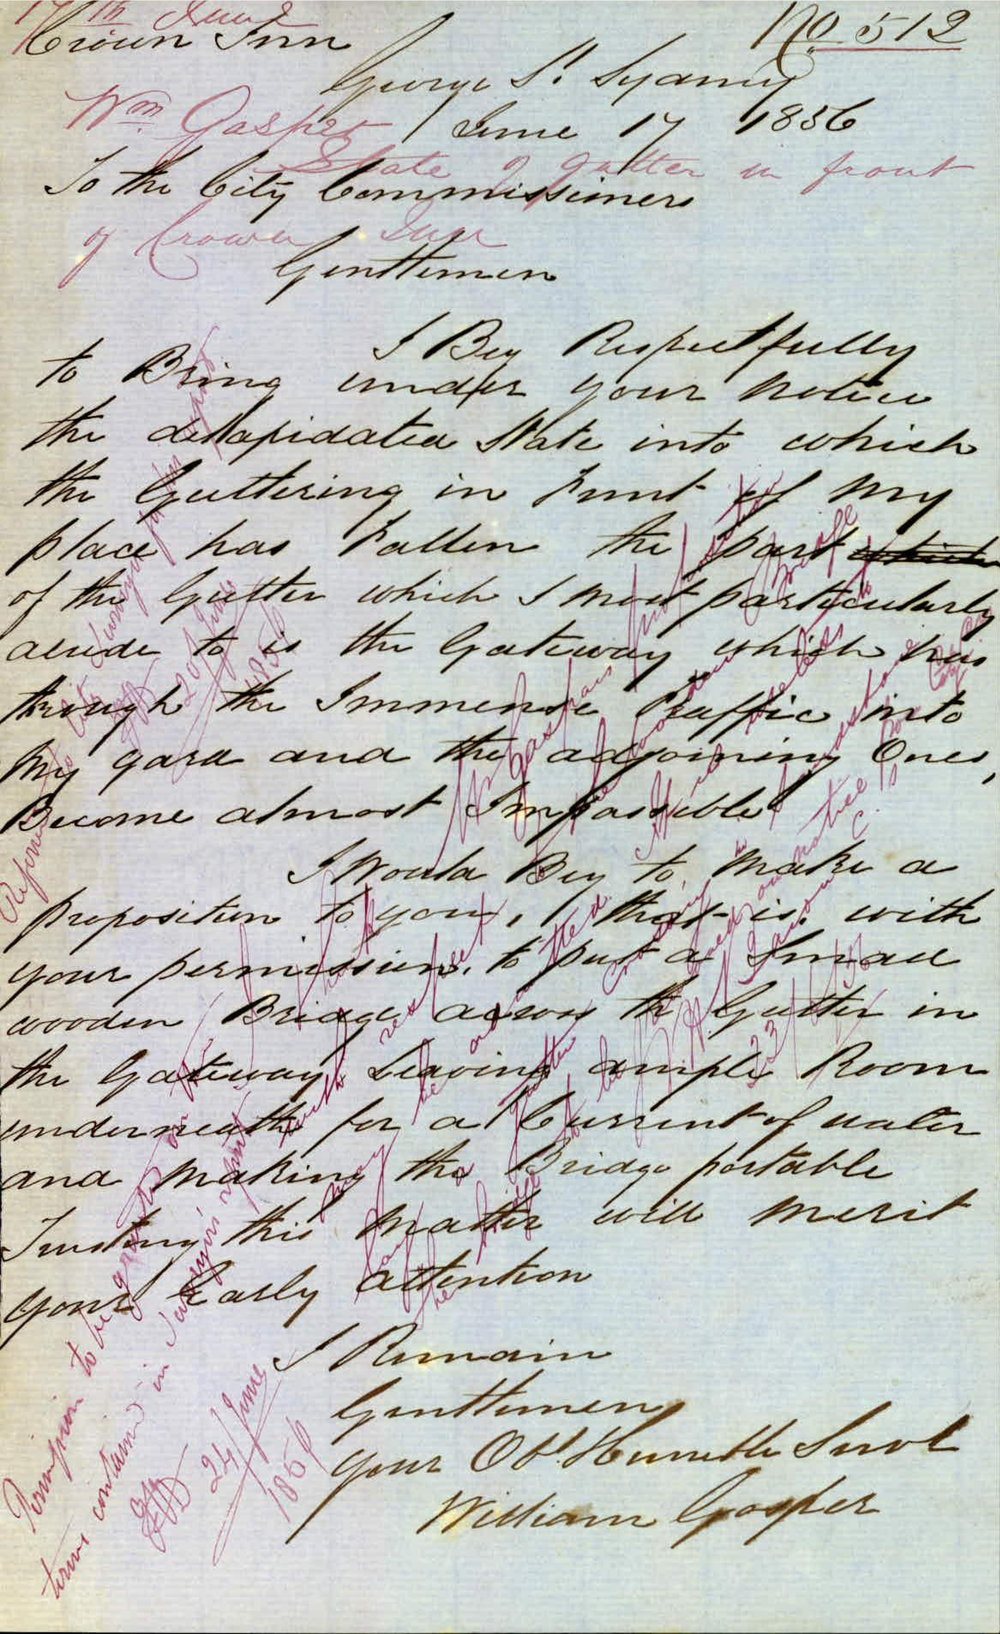 17th June
Crown Inn
No 512
George St Sydney
Wm Gasper
June 17 1856
State of gutter in front
To the City Commissioners
of Crown Inn
Gentlemen
I Beg Respectfully
to Bring under your notice
the delapidated State into which
the Guttering in Front of My
place has Fallen the part which
of the Gutter which I most particularly
alude to is the Gateway which has
through the Immense Traffic into
My yard and the adjoining Ones,
Become almost Impassible
I Would Beg to Make a
proposition to you, that is, with
your permission, to put a Small
wooden Bridge across the Gutter in
the Gateway Leaving ample Room
underneath for a Current of water
and Making the Bridge portable
Trusting this Matter will Merit
your Early attention
I Remain
Gentlemen
Your Obt Humble Servt
William Gasper
City Surveyor for report
20 June
1856
Wm Gaspers
wooden Bridge
with respect
may be
the Bridge
notice
23/6/56
Permission to be granted on the
terms contained in Surveyor's report
24 June
1856